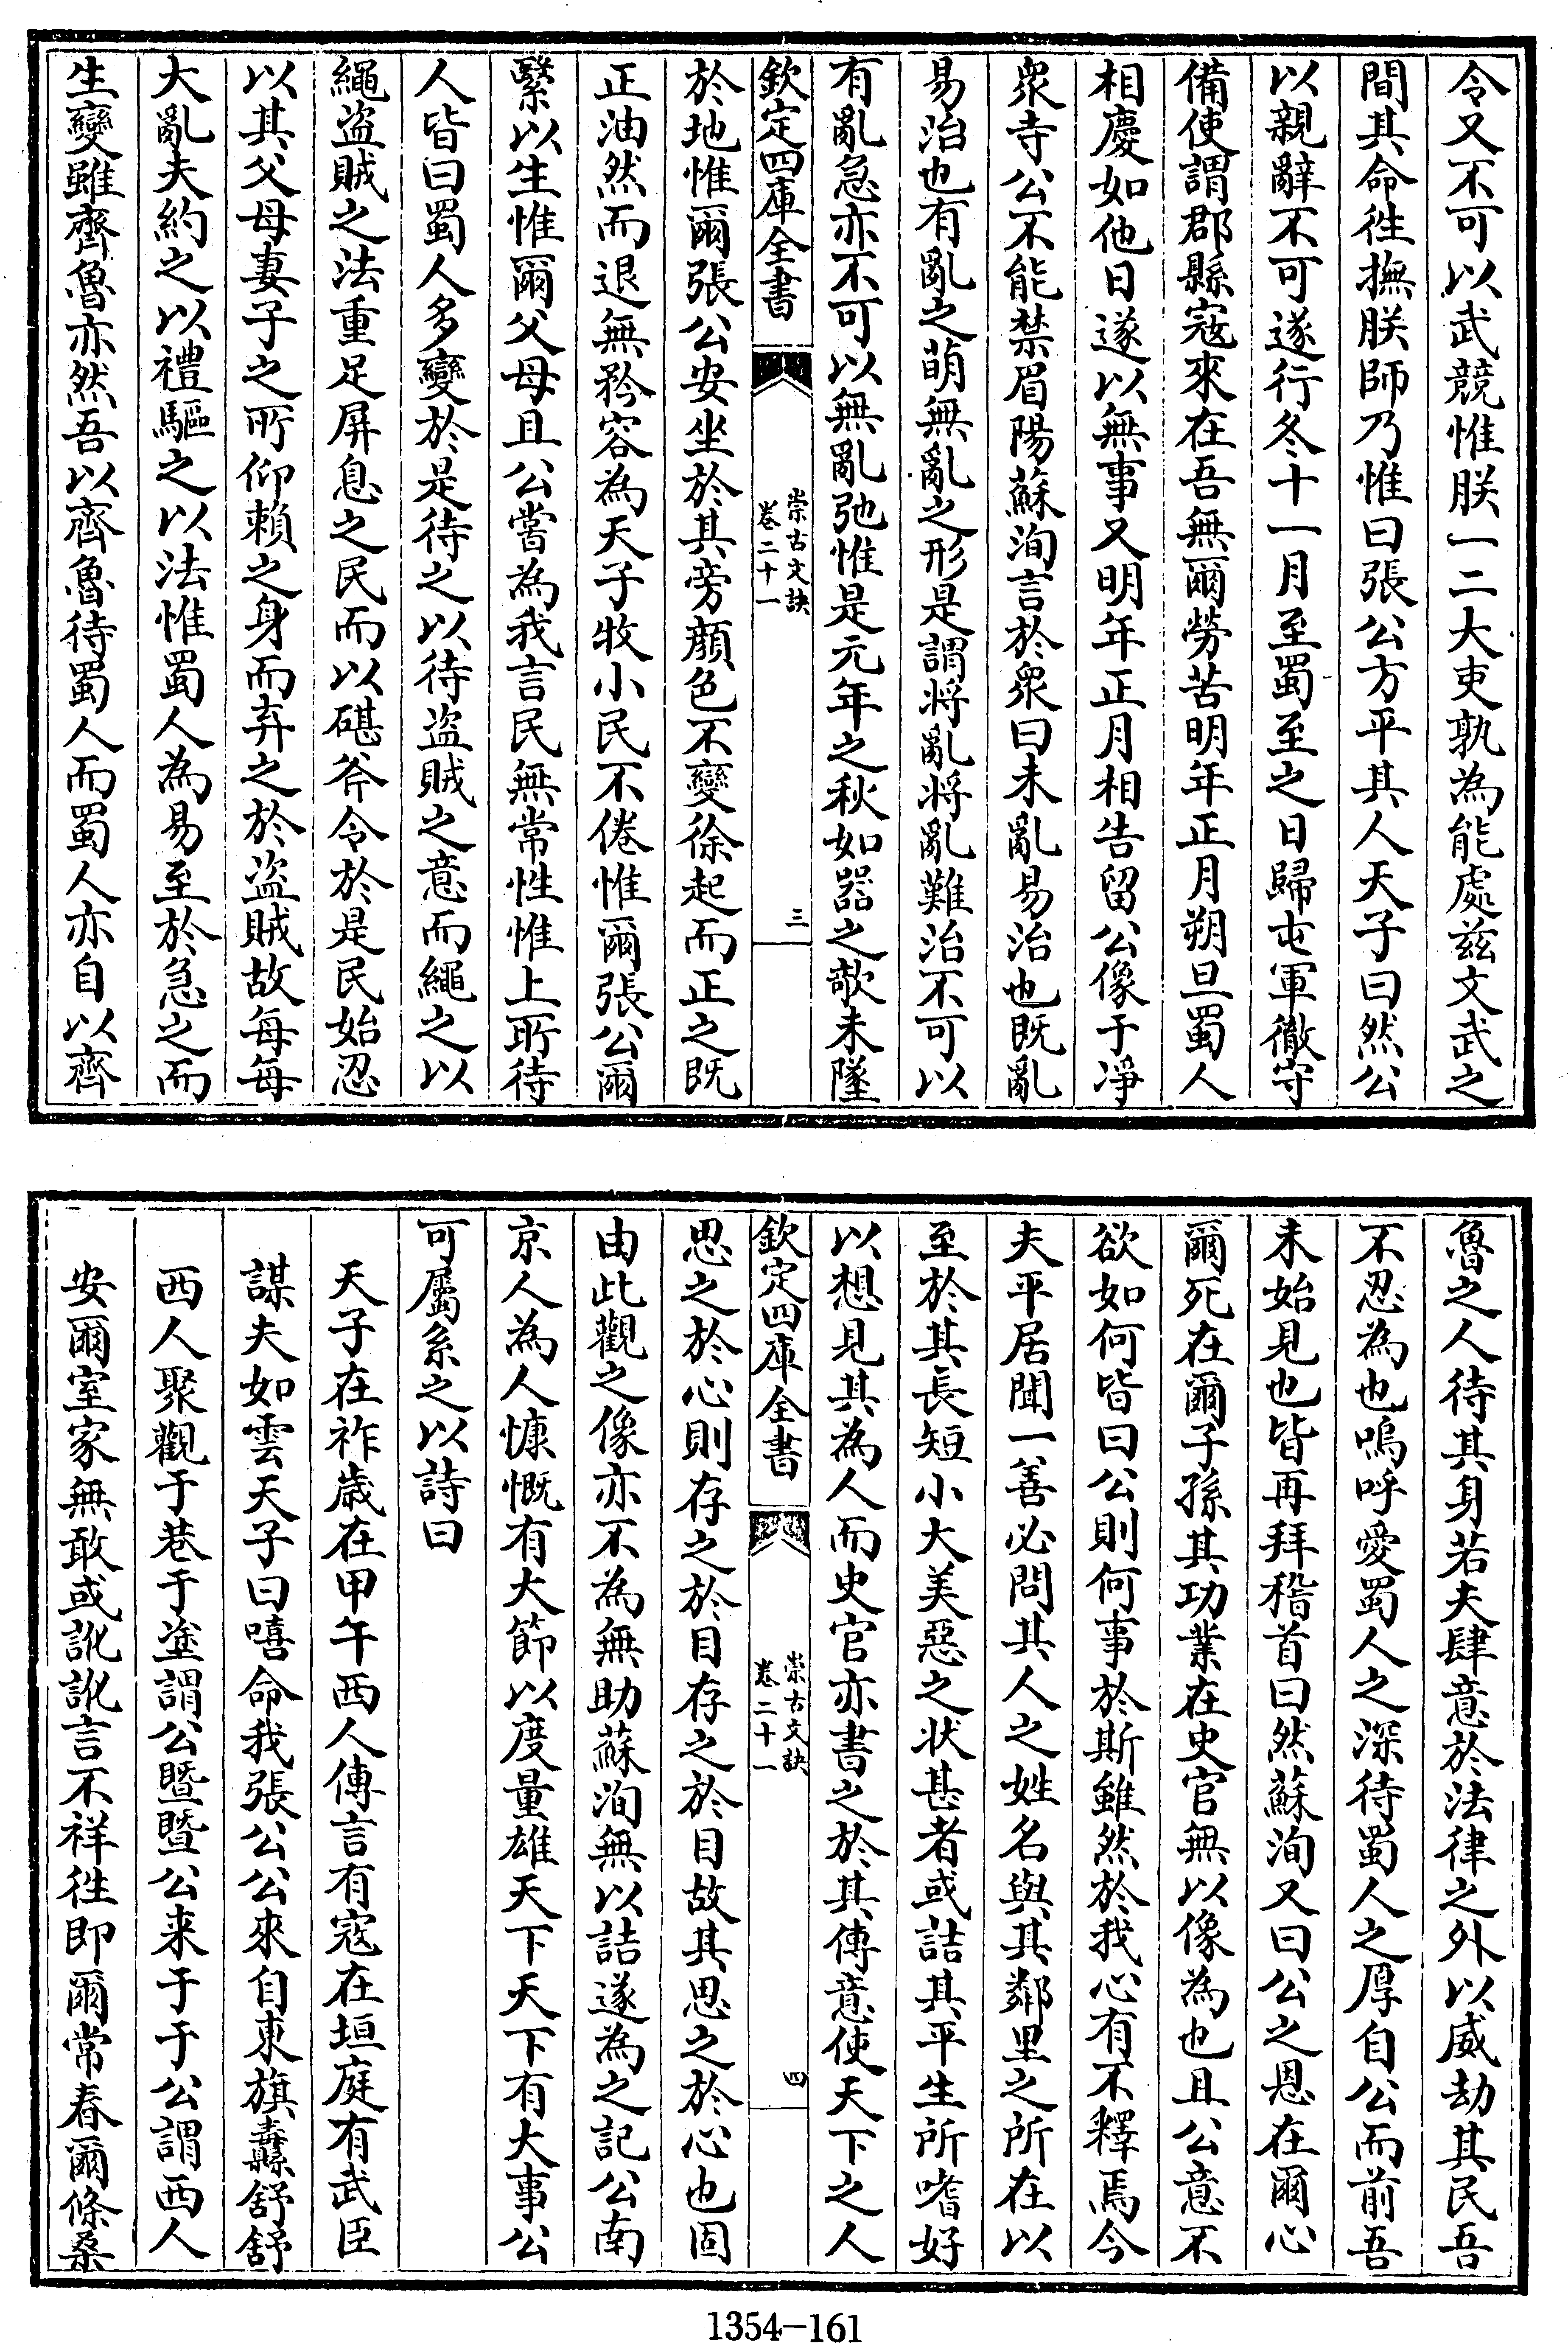 令又不可以武競惟朕一二大吏孰為能處兹文武之
間其命徃撫朕師乃惟曰張公方平其人天子曰然公
以親辭不可遂行冬十一月至蜀至之日歸屯軍徹守
備使謂郡縣寇來在吾無爾勞苦明年正月朔旦蜀人
相慶如他日遂以無事又明年正月相告留公像于淨
衆寺公不能禁眉陽蘇洵言於衆曰未亂易治也既亂
易治也有亂之萌無亂之形是謂将亂将亂難治不可以
有亂急亦不可以無亂弛惟是元年之秋如器之欹未墜
欽定四庫全書
崇古文訣
卷二十一
三
於地惟爾張公安坐於其旁顔色不變徐起而正之既
正油然而退無矜容為天子牧小民不倦惟爾張公爾
繄以生惟爾父母且公嘗為我言民無常性惟上所待
人皆曰蜀人多變於是待之以待盗賊之意而繩之以
繩盗賊之法重足屏息之民而以碪斧令於是民始忍
以其父母妻子之所仰賴之身而弃之於盗賊故每每
大亂夫約之以禮驅之以法惟蜀人為易至於急之而
生變雖齊魯亦然吾以齊魯待蜀人而蜀人亦自以齊
魯之人待其身若夫肆意於法律之外以威劫其民吾
不忍為也嗚呼愛蜀人之深待蜀人之厚自公而前吾
未始見也皆再拜稽首曰然蘇洵又曰公之恩在爾心
爾死在爾子孫其功業在史官無以像為也且公意不
欲如何皆曰公則何事於斯雖然於我心有不釋焉今
夫平居聞一善必問其人之姓名與其鄰里之所在以
至於其長短小大美惡之状甚者或詰其平生所嗜好
以想見其為人而史官亦書之於其傳意使天下之人
欽定四庫全書
崇古文訣
卷二十一
四
思之於心則存之於目存之於目故其思之於心也固
由此觀之像亦不為無助蘇洵無以詰遂為之記公南
京人為人慷慨有大節以度量雄天下天下有大事公
可屬系之以詩曰
天子在祚歲在甲午西人傳言有寇在垣庭有武臣
謀夫如雲天子曰嘻命我張公公來自東旗纛舒舒
西人聚觀于巷于塗謂公暨暨公来于于公謂西人
安爾室家無敢或訛訛言不祥徃即爾常春爾條桑
1354-161